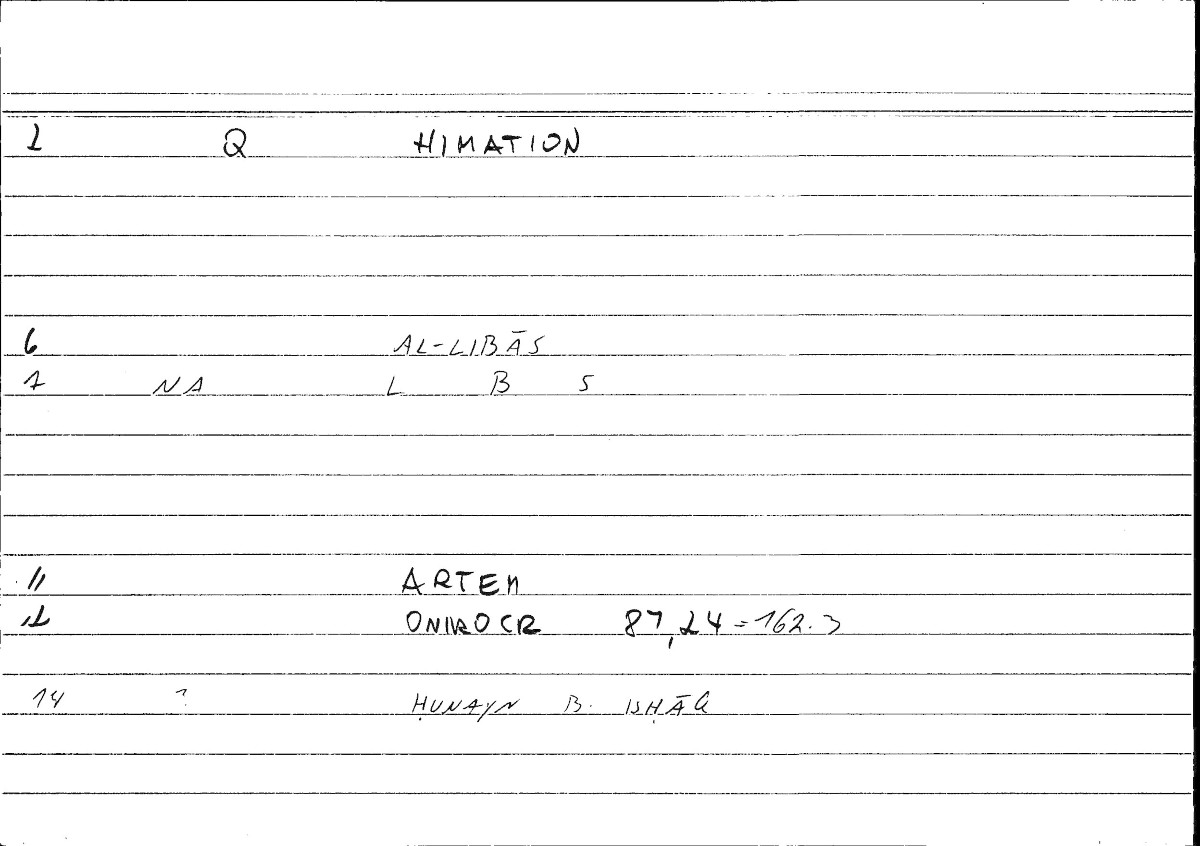 2 Q HIMATION
6 AL-LIBĀS
7 NA L B S
11 ARTEM
12 ONIROCR 87,24 = 162.3
14 ? ḤUNAYN B. ISḤĀQ